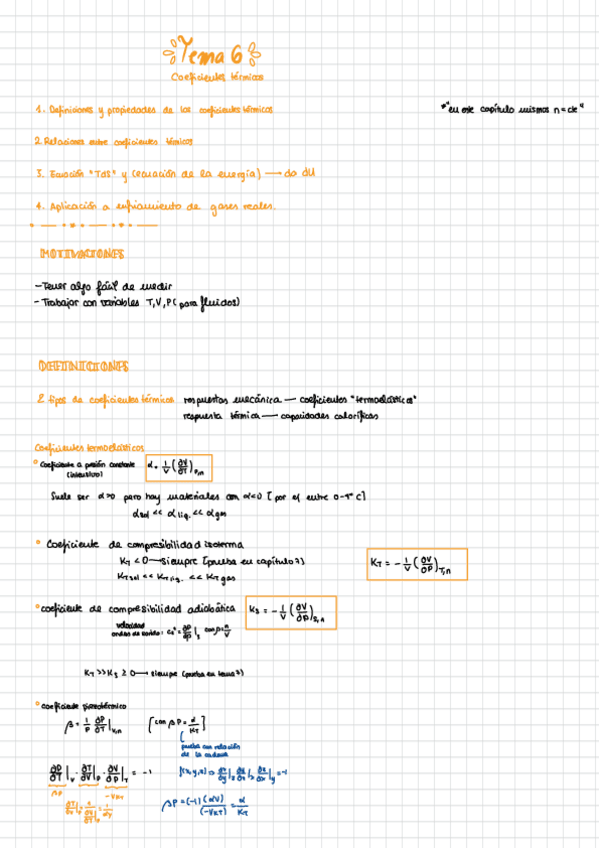 Tema 6
Coeficientes térmicos
1. Definiciones y propiedades de los coeficientes térmicos
*"en este capítulo mismos n=cte"
2 Relaciones entre coeficientes térmicos
3. Ecuación "TdS" y (ecuación de la energía) → da dU
4. Aplicación a enfriamiento de gases reales.
MOTIVACIONES
- Tener algo fácil de medir
- Trabajar con variables T, V, P (para fluidos)
DEFINICIONES
2 tipos de coeficientes térmicos respuestas mecánica — coeficientes "termoelásticos"
respuesta térmica — capacidades caloríficas
Coeficientes termoelásticos
° Coeficiente a presión constante α = 1/V (∂V/∂T)P,n
(intensivo)
Suele ser α>0 pero hay materiales con α<0 [por ej entre 0-4° C]
α sol << α liq. << α gas
° Coeficiente de compresibilidad isoterma
KT < 0 → siempre (prueba en capítulo 7)
KT = - 1/V (∂V/∂P)T,n
KT sol << KT liq. << KT gas
° coeficiente de compresibilidad adiabática KS = - 1/V (∂V/∂P)S,n
velocidad
ondas de sonido:
KT >> KS ≥ 0 → siempre (prueba en tema 7)
° coeficiente piezotérmico
β = 1/P ∂P/∂T|V,n [con βP = α/KT]
prueba con relación
de la cadena
∂P/∂T|V · ∂T/∂V|P · ∂V/∂P|T = -1
f(x,y,z) → ∂x/∂y|z ∂y/∂z|x ∂z/∂x|y = -1
βP
-VKT
βP = (-1)(αV)/(-VKT) = α/KT